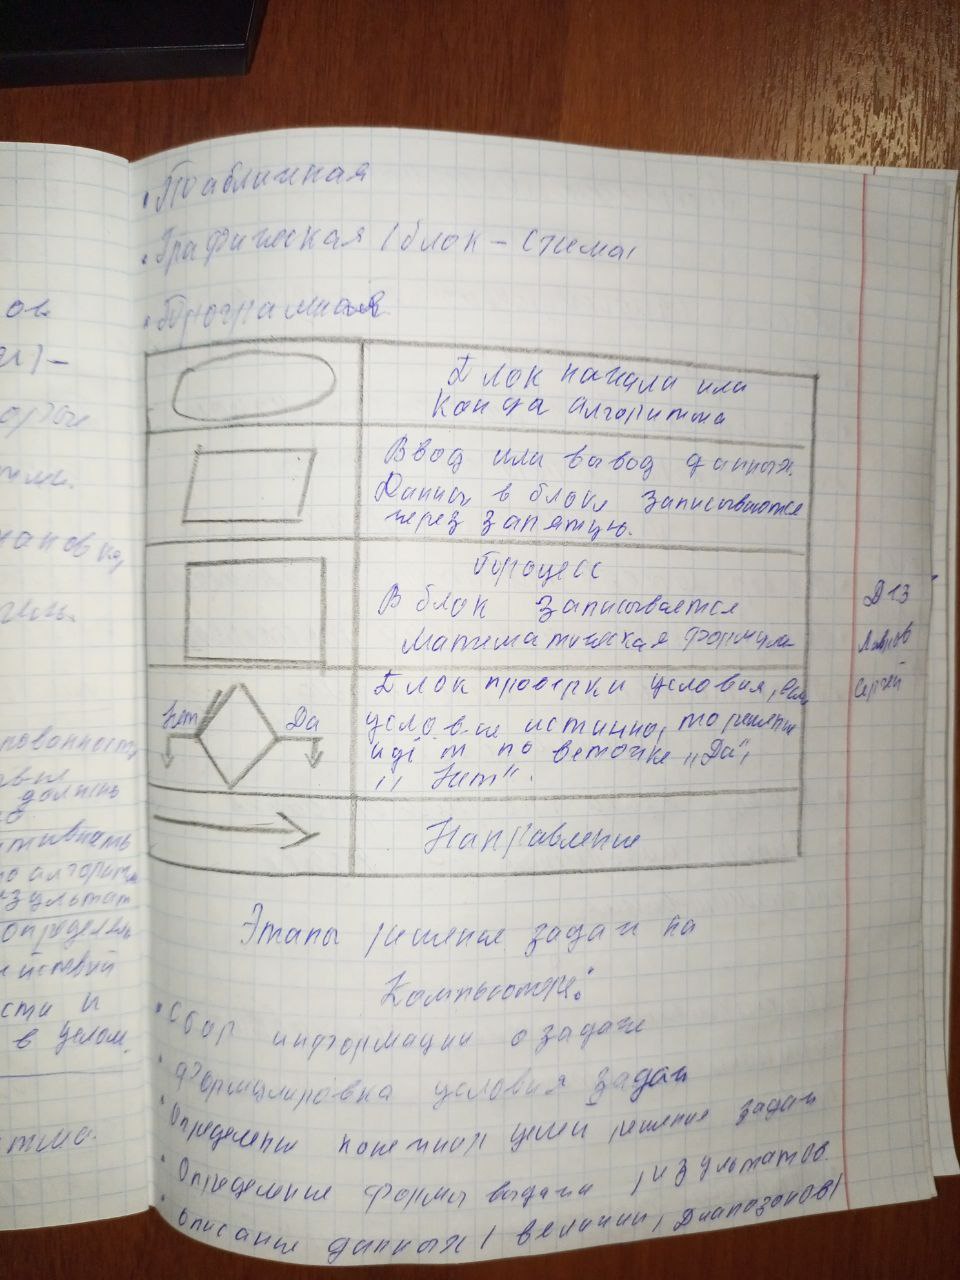 • Табличная
• Графическая (блок-схема)
• Програмная
Блок начали или
Конца алгоритма
Ввод или вывод данных.
Данны в блок записываются
через запятую.
Процесс
В блок записывается
Математическая формула
Блок проверки условия, если
условие истинно, то решение
идёт по веточке "Да",
"Нет".
Нет
Да
Направление
Д13
Сергей
Этапы решение задач на
Компьютере:
• Сбор информации о задаче
• Формулировка условия задач
• Определение конечных целей решение задач
• Определение формы выдачи результатов.
• Описание данных (величин, Диапазонов)
ов
должны
алгоритм
результат
определен
сти и
в целом.